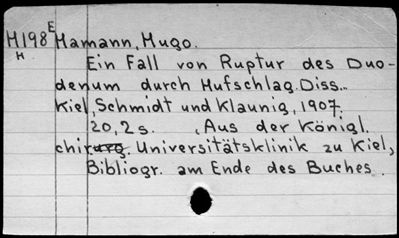 E
H198 Hamann, Hugo.
H
Ein Fall von Ruptur des Duo-
denum durch Hufschlag. Diss..
Kiel, Schmidt und Klaunig, 1907.
20, 2 s. , Aus der Königl.
chirurg. Universitätsklinik zu Kiel,
Bibliogr. am Ende des Buches.